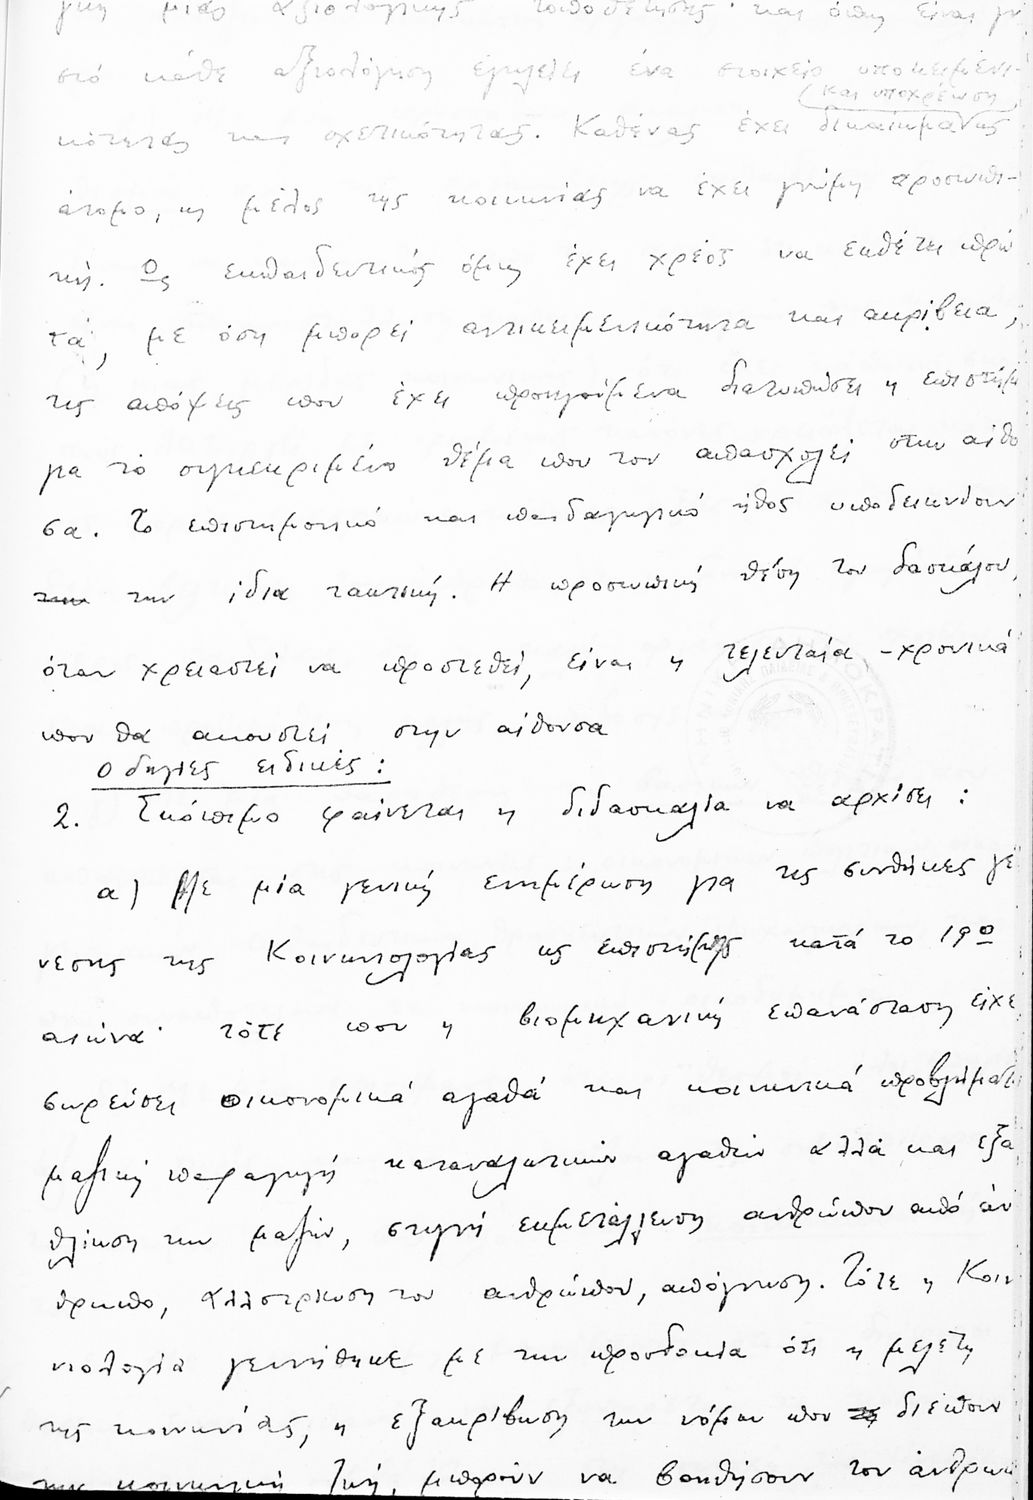 μιας αξιολογικής τοποθέτησης· και όπως είναι γν
στό κάθε αξιολόγηση εγκλείει ένα στοιχείο υποκειμενι-
(και υποχρέωση)
κότητας και σχετικότητας. Καθένας έχει δικαίωμα ως
άτομο, ως μέλος της κοινωνίας να έχει γνώμη προσωπι-
κή. Ως εκπαιδευτικός όμως έχει χρέος να εκθέτει πρώ
τα, με όση μπορεί αντικειμενικότητα και ακρίβεια,
τις απόψεις που έχει προηγούμενα διατυπώσει η επιστήμ
για το συγκεκριμένο θέμα που τον απασχολεί στην αίθο
σα. Το επιστημονικό και παιδαγωγικό ήθος υποδεικνύουν
την ίδια τακτική. Η προσωπική θέση του δασκάλου,
όταν χρειαστεί να προστεθεί, είναι η τελευταία -χρονικά
που θα ακουστεί στην αίθουσα
Οδηγίες ειδικές:
2. Σκόπιμο φαίνεται η διδασκαλία να αρχίσει:
α) Με μία γενική ενημέρωση για τις συνθήκες γέ
νεσης της Κοινωνιολογίας ως επιστήμης κατά το 19ο
αιώνα· τότε που η βιομηχανική επανάσταση είχε
σωρεύσει οικονομικά αγαθά και κοινωνικά προβλήματα
μαζική παραγωγή καταναλωτικών αγαθών αλλά και εξα
θλίωση των μαζών, στυγνή εκμετάλλευση ανθρώπου από άν
θρωπο, αλλοτρίωση του ανθρώπου, απόγνωση. Τότε η Κοιν
νιολογία γεννήθηκε με την προσδοκία ότι η μελέτη
της κοινωνίας, η εξακρίβωση των νόμων που διέπουν
την κοινωνική ζωή, μπορούν να βοηθήσουν τον άνθρωπ